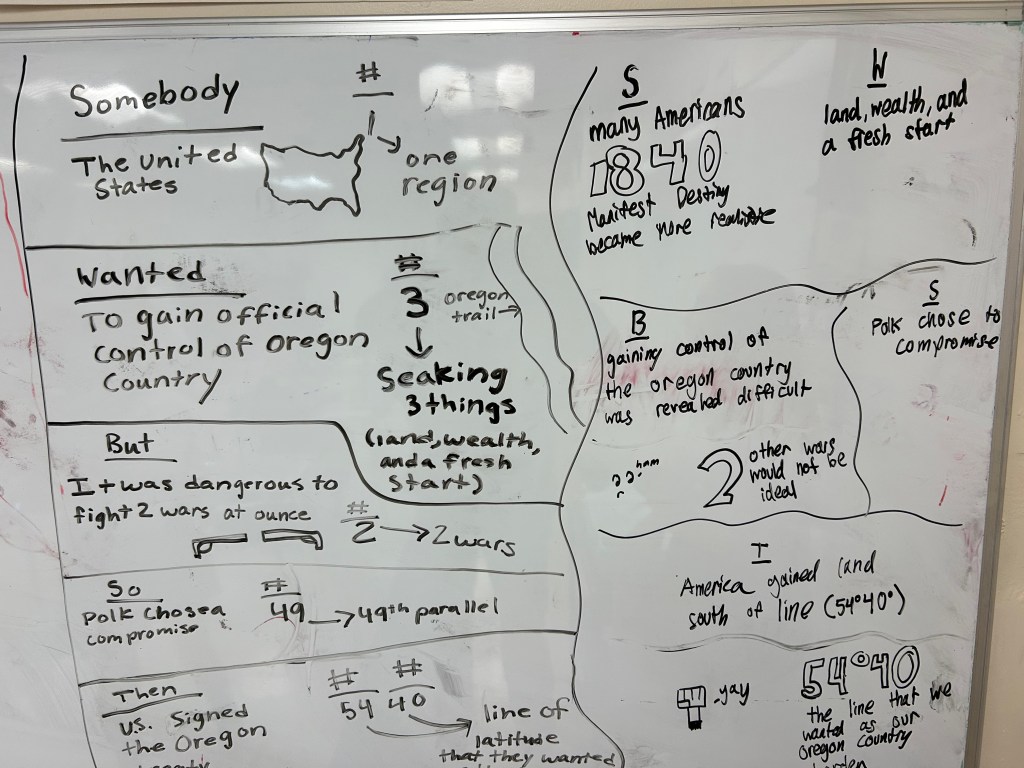 Somebody
#
1
The United
States
one
region
Wanted
#
3
oregon
trail
To gain official
control of Oregon
Country
Seaking
3 things
(land, wealth,
and a fresh
start)
But
It was dangerous to
fight 2 wars at ounce
#
2
2 wars
So
Polk chose a
compromise
#
49
49th parallel
Then
U.S. Signed
the Oregon
#
54
#
40
line of
latitude
that they wanted
S
many Americans
1840
Manifest Destiny
became more
W
land, wealth, and
a fresh start
B
gaining control of
the oregon country
was revealed difficult
??? hmm
2
other wars
would not be
ideal
S
Polk chose to
compromise
T
America gained land
south of line (54°40°)
yay
54°40
the line that we
wanted as our
Oregon Country